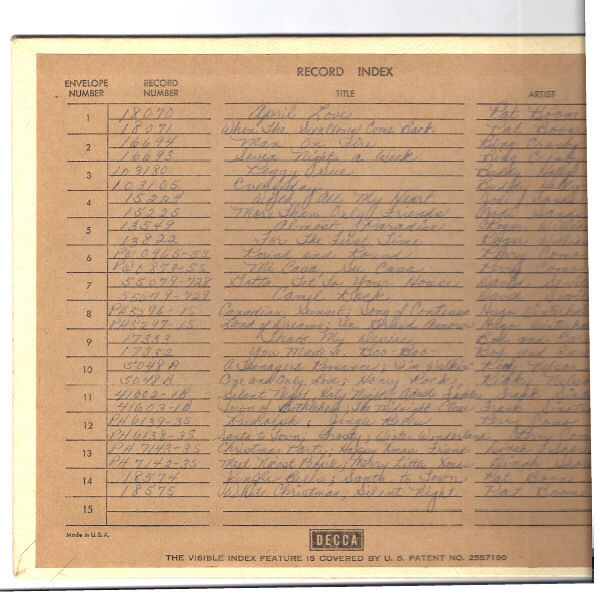 RECORD INDEX
ENVELOPE NUMBER RECORD NUMBER TITLE ARTIST
1 18070 April Love Pat Boone
18071 When The Swallows Come Back Pat Boone
2 16694 Man On Fire Bing Crosby
16693 Seven Nights a Week Bing Crosby
3 103180 Peggy Sue Buddy Holly
103105 Everyday Buddy Holly
4 15224 With All My Heart Jodi Sands
15225 More Than Only Friends Jodi Sands
5 13549 Almost Paradise Roger Willia
13822 For The First Time Roger Willia
6 0965-55 Round and Round Perry Como
0873-55 Mi Casa, Su Casa Perry Como
7 55079-728 Gotta Get To Your House David
55079-729 Camel Rock David
8 PH5296-15 Canadian Sunset; Song of Hugo Winterha
PH5297-15 Land of Dreams; Un Grand Amour Hugo Winterha
9 17333 My Bob and
17332 You Made a Boo-Boo Bob and
10 5048A A Teenagers Romance; I'm Walkin' Ricky Nels
5048B One and Only Love; Honey Rock Ricky Nelso
11 41602-1B Silent Night, Holy Night; Adeste Fideles Frank
41603-1B of Bethlehem; The Midnight Clear Frank
12 PH6139-35 Rudolph; Jingle Bells Perry Como
PH6138-35 Santa to Town, Frosty; Winter Wonderland Perry Com
13 PH7143-35 Christmas Party, Happy Xmas Friend Dinah Shore
PH7143-35 Nicest People; Merry Little Xmas Dinah Shore
14 18574 Jingle Bells; Santa to Town Pat Boone
18575 White Christmas, Silent Night Pat Boone
15
Made in U.S.A.
DECCA
THE VISIBLE INDEX FEATURE IS COVERED BY U. S. PATENT NO. 2557190